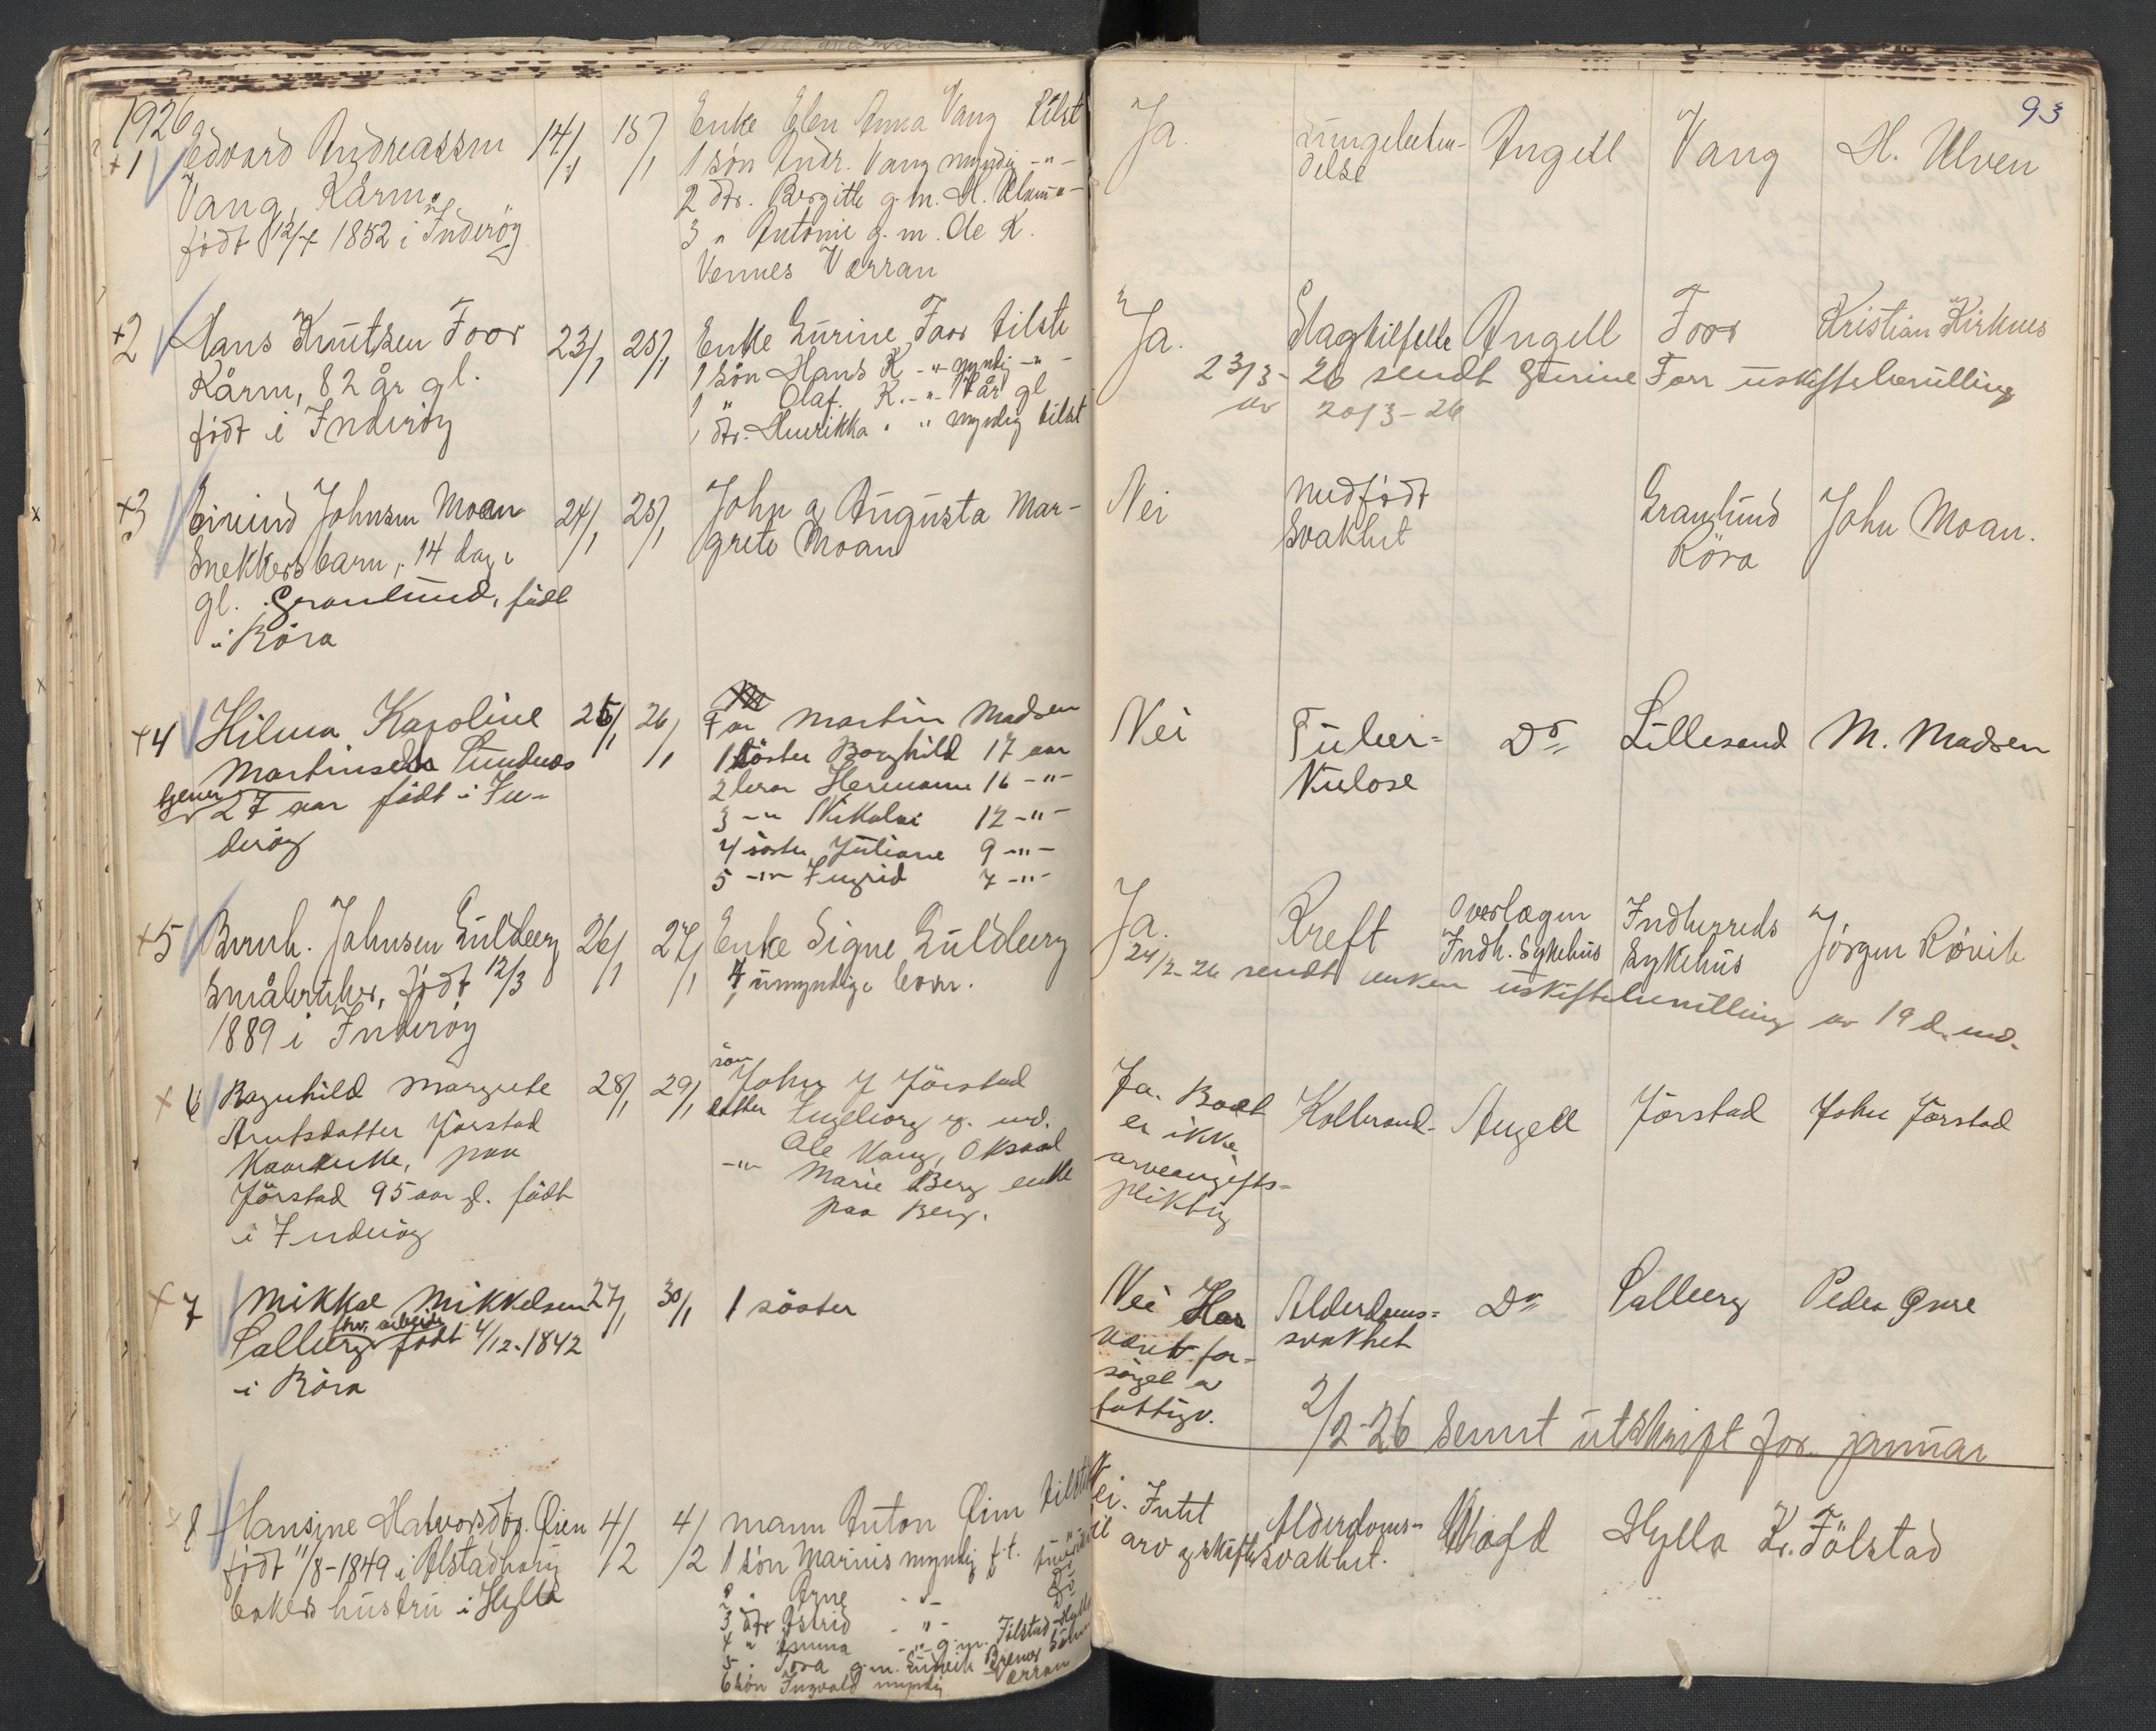 1926
93
+1 Edvard Andreassen 14/1 15/1 Enke Elen Anna Vang tilst
Vang, Kårm. 1 sön Andr. Vang myndig -"-
født 12/7 1852 i Inderöy 2 dtr. Bergitte g.m. H. Ulven -"-
3 " Antonie g.m. Ole K.
Vennes Verran
Ja. Lungebeten- Angell Vang H. Ulven
delse
+2 Hans Knutsen Foor 23/1 25/1 Enke Gurine Foor tilste
Kårm, 82 år gl. 1 sön Hans K -"- myndig -"-
født i Inderöy 1 " Olaf. K. -"- år gl
1 dtr. Henrikka " " myndig tilst
Ja. Slagtilfelle Angell Foor Kristian Kirknes
23/3-26 sendt Gurine Foor uskiftebevilling
av 20/3-26
+3 Eivind Johnsen Moan 24/1 25/1 John og Augusta Mar-
Snekkersbarn, 14 dage grete Moan
gl. Granlund, född
i Röra
Nei Medfödt Granlund John Moan.
svakhet Röra
+4 Hilma Karoline 25/1 26/1 Far Martin Madsen
Martinsen Sundnes 1 söster Borghild 17 aar
tjener 27 aar födt i In- 2 bror Hermann 16 -"-
deröy 3 -"- Nikolai 12 -"-
4 söster Juliane 9 -"-
5 -"- Ingrid 7 -"-
Nei Tuber- Do Lillesand M. Madsen
kulose
+5 Bernh. Johnsen Guldberg 26/1 27/1 Enke Signe Guldberg
Småbruker, födt 12/3 4 umyndige barn.
1889 i Inderöy
Ja. Kreft Overlægen Indherreds Jörgen Rövik
Indh. Sykehus Sykehus
24/2-26 sendt enken uskiftebevilling av 19 d. md.
+6 Ragnhild Margrete 28/1 29/1 sön John J Jörstad
Arntsdatter Jörstad datter Ingeborg g. md.
Kaarenke, paa Ole Vang, Oksaal
Jörstad 95 aar gl. födt -"- Marie Berg enke
i Inderöy paa Berg.
Ja. Boet Kolbrand. Angell Jörstad John Jörstad
er ikke
arveavgifts-
pliktig
+7 Mikkal Mikkelsen 27/1 30/1 1 söster
fhv. arbeider
Salberg födt 4/12-1842
i Röra
Nei Har Alderdoms- Do Salberg Peder Gure
vært for- svakhet
sörget av
fattigv.
2/2-26 Sennt utskrift for januar
8 Hansine Halvorsdtr. Öien 4/2 4/2 Mann Anton Öien tilste
födt 11/8-1849 i Alstadhaug 1 sön Marius myndig f.t.
bakers hustru i Hylla 2 " Arne -"- Do
3 dtr Astrid -"- Do
4 " Emma -"- g.m. Fölstad Hylla
5 " Tora g.m. Brenne
6 sön Ingvald myndig Verran
Nei. Intet Alderdoms- Hylla K. Fölstad
til arv og skifte svakhet.